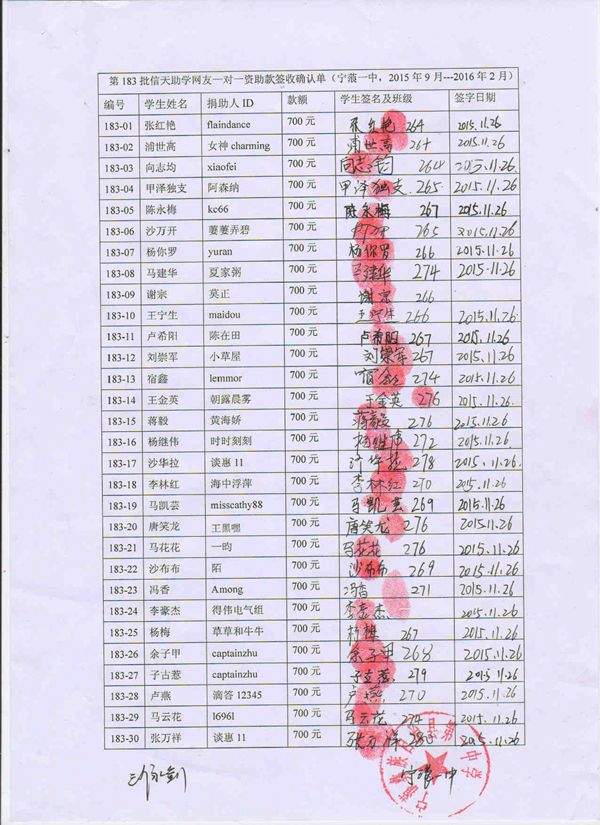 第 183 批信天助学网友一对一资助款签收确认单（宁蒗一中，2015 年 9 月---2016 年 2 月）
编号 学生姓名 捐助人 ID 款额 学生签名及班级 签字日期
183-01 张红艳 flaindance 700 元 张红艳 264 2015.11.26
183-02 浦世高 女神 charming 700 元 浦世高 264 2015.11.26
183-03 向志均 xiaofei 700 元 向志钧 264 2015.11.26
183-04 甲泽独支 阿森纳 700 元 甲泽独支 265 2015.11.26
183-05 陈永梅 kc66 700 元 陈永梅 267 2015.11.26
183-06 沙万开 萋萋弄碧 700 元 265 2015.11.26
183-07 杨你罗 yuran 700 元 杨你罗 266 2015.11.26
183-08 马建华 夏家粥 700 元 马建华 274 2015.11.26
183-09 谢宗 莫正 700 元 谢宗 266
183-10 王宁生 maidou 700 元 王宁生 266 2015.11.26
183-11 卢希阳 陈在田 700 元 卢希阳 267 2015.11.26
183-12 刘崇军 小草屋 700 元 刘崇军 267 2015.11.26
183-13 宿鑫 lemmor 700 元 宿鑫 274 2015.11.26
183-14 王金英 朝露晨雾 700 元 王金英 276 2015.11.26
183-15 蒋毅 黄海娇 700 元 蒋毅 276 2015.11.26
183-16 杨继伟 时时刻刻 700 元 杨继伟 272 2015.11.26
183-17 沙华拉 谈惠 11 700 元 278 2015.11.26
183-18 李林红 海中浮萍 700 元 李林红 270 2015.11.26
183-19 马凯芸 misscathy88 700 元 马凯芸 269 2015.11.26
183-20 唐笑龙 王黑嘿 700 元 唐笑龙 276 2015.11.26
183-21 马花花 一昀 700 元 马花花 276 2015.11.26
183-22 沙布布 陌 700 元 沙布布 269 2015.11.26
183-23 冯香 Among 700 元 冯香 271 2015.11.26
183-24 李豪杰 得伟电气组 700 元 李豪杰 2015.11.26
183-25 杨梅 草草和牛牛 700 元 杨梅 267 2015.11.26
183-26 余子甲 captainzhu 700 元 余子甲 268 2015.11.26
183-27 子古惹 captainzhu 700 元 子古惹 279 2015.11.26
183-28 卢燕 滴答 12345 700 元 卢燕 270 2015.11.26
183-29 马云花 l696l 700 元 马云花 274 2015.11.26
183-30 张万祥 谈惠 11 700 元 张万祥 280 2015.11.26
宁蒗一中